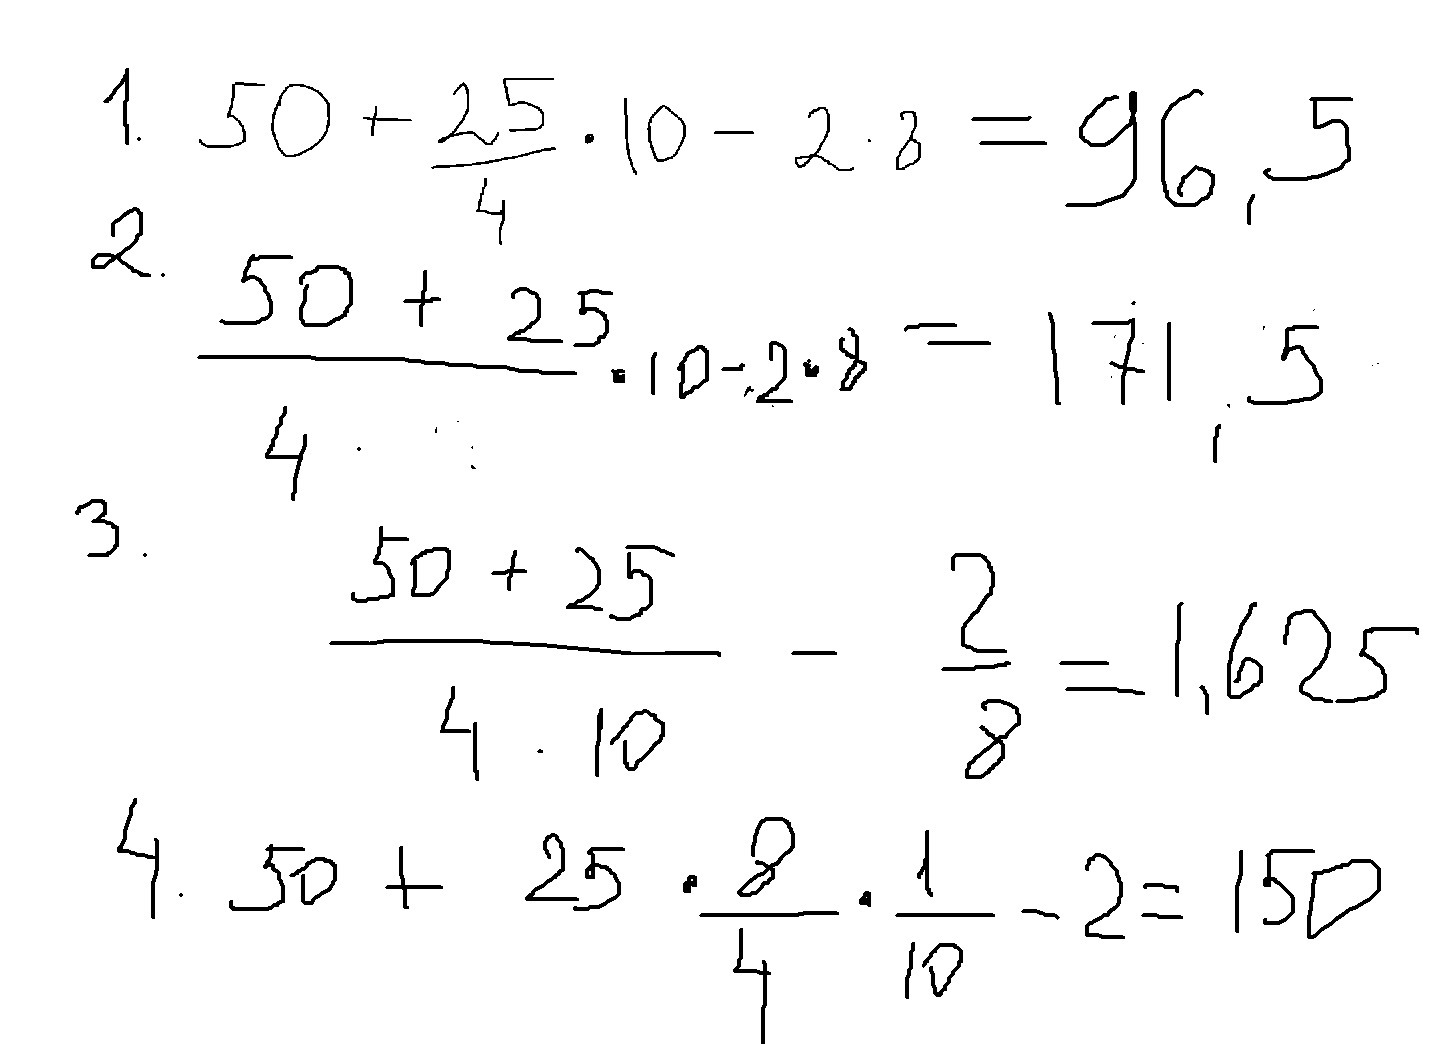 1. 50 + 25/4 · 10 - 2 · 8 = 96,5
2. (50 + 25)/4 · 10 - 2 · 8 = 171,5
3. (50 + 25)/(4 · 10) - 2/8 = 1,625
4. 50 + 25 · 8/4 · 1/10 - 2 = 150